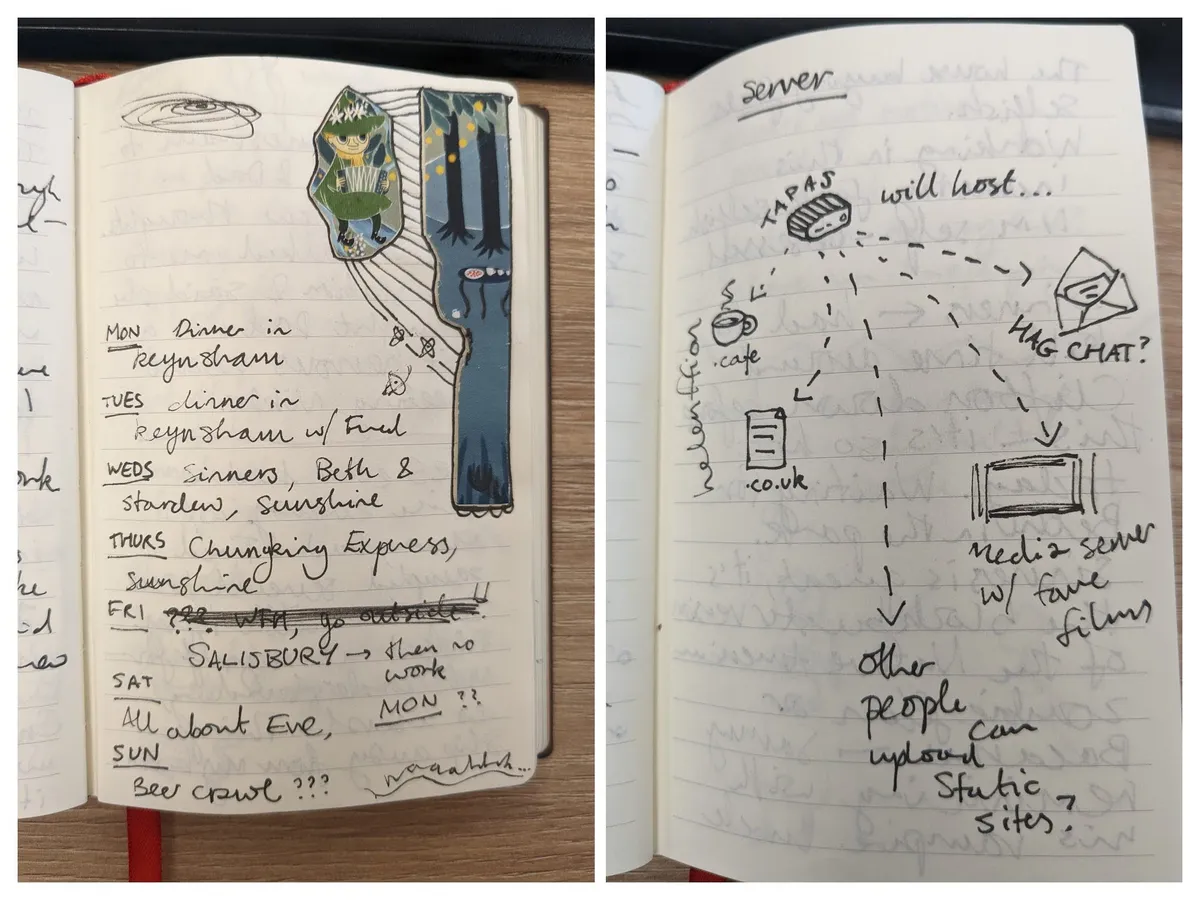 MON Dinner in
Keynsham
TUES dinner in
Keynsham w/ Fred
WEDS Sinners, Beth &
Stardew, Sunshine
THURS Chungking Express,
Sunshine
FRI ??? WFH, go outside
SALISBURY → then no
work
MON ??
SAT
All about Eve,
SUN
Beer crawl ???
server
TAPAS will host...
.cafe
HAG CHAT?
.co.uk
Media server
w/ fave
films
other
people
can
upload
Static
sites?